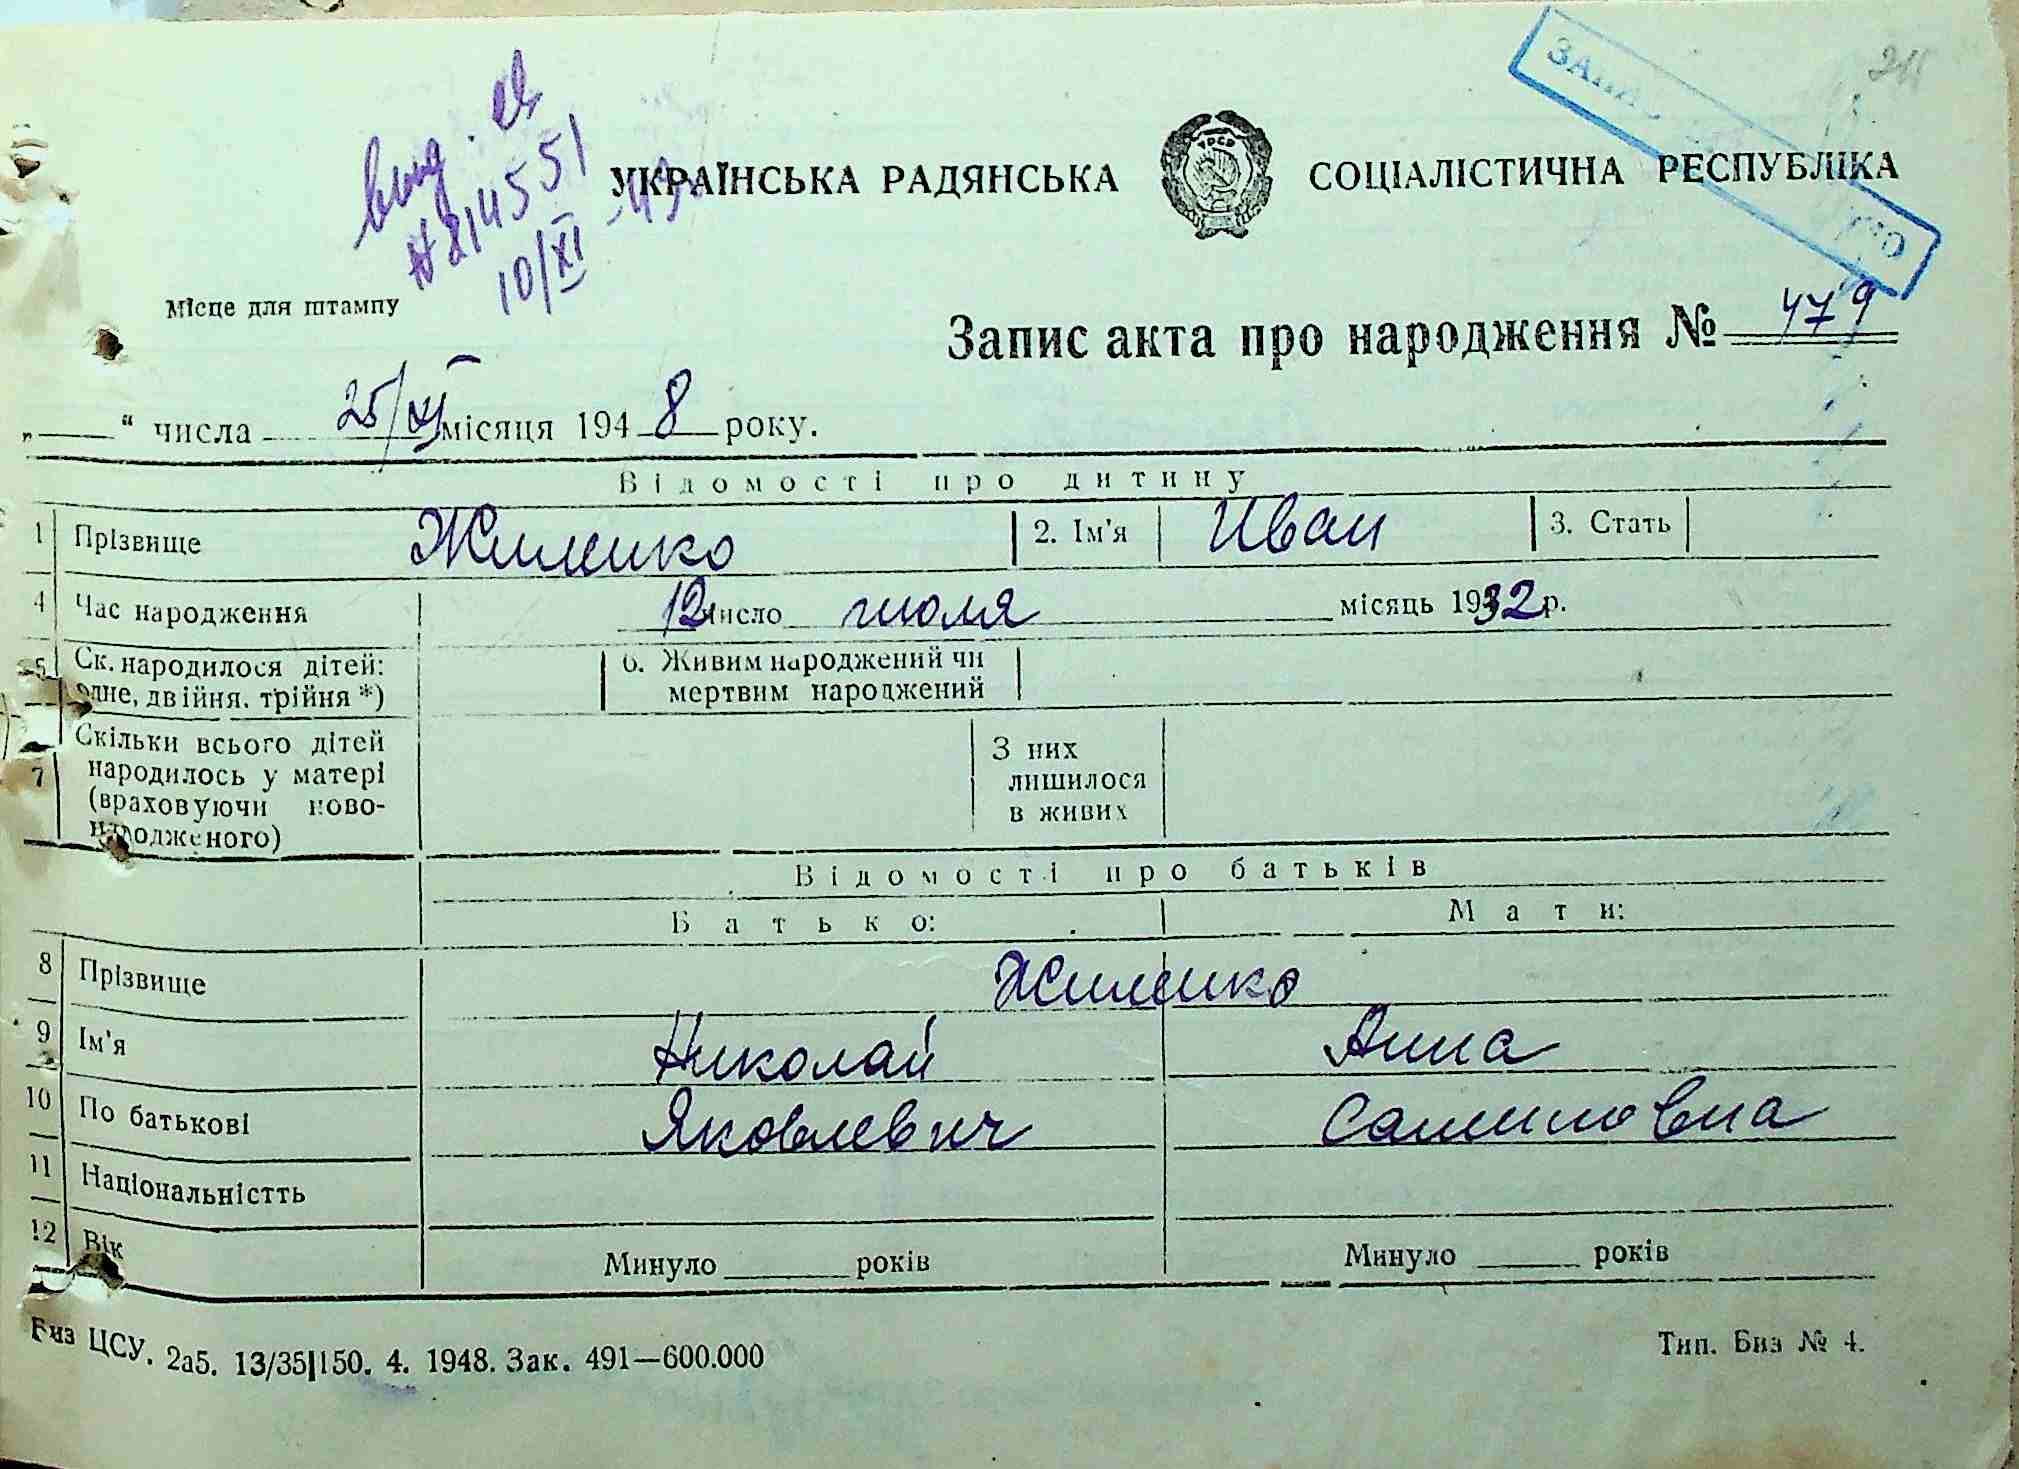 вид.
№ 814551
10/XI -49
ЗАПИС
211
УКРАЇНСЬКА РАДЯНСЬКА СОЦІАЛІСТИЧНА РЕСПУБЛІКА
УРСР
Місце для штампу
Запис акта про народження № 479
„ “ числа 25/XI місяця 1948 року.
Відомості про дитину
1 Прізвище Жилинко 2. Ім'я Иван 3. Стать
4 Час народження 12 число июля місяць 1932 р.
5 Ск. народилося дітей: одне, двійня, трійня *) 6. Живим народжений чи мертвим народжений
7 Скільки всього дітей народилось у матері (враховуючи ново-народженого) З них лишилося в живих
Відомості про батьків
Батько: Мати:
8 Прізвище Жилинко
9 Ім'я Николай Анна
10 По батькові Яковлевич
11 Національністть
12 Вік Минуло років Минуло років
Биз ЦСУ. 2а5. 13/35|150. 4. 1948. Зак. 491—600.000 Тип. Биз № 4.